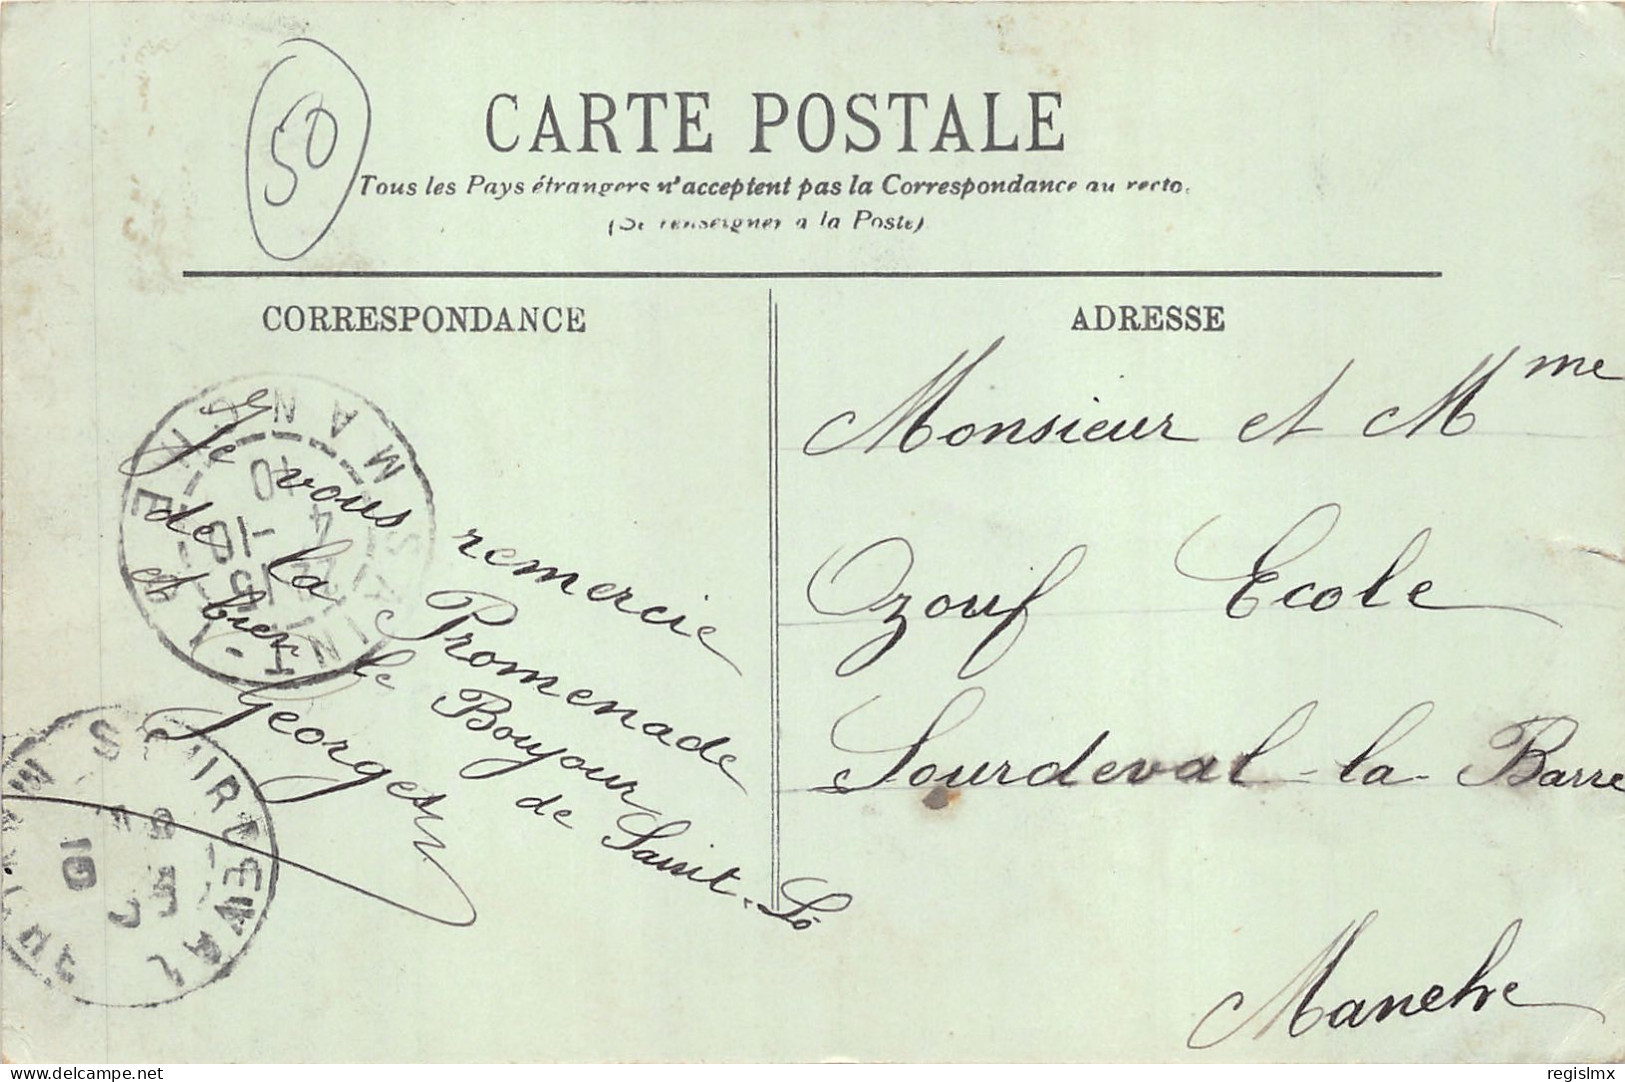 50
CARTE POSTALE
Tous les Pays étrangers n'acceptent pas la Correspondance au recto.
(Se renseigner à la Poste)
CORRESPONDANCE
Je vous remercie
de la Promenade
et bien le Boujour
de Saint-Lô
Georges
ADRESSE
Monsieur et Mme
Ozouf Ecole
Sourdeval-la-Barre
Manche
SAINT-LO
MANCHE
delcampe.net
regislmx